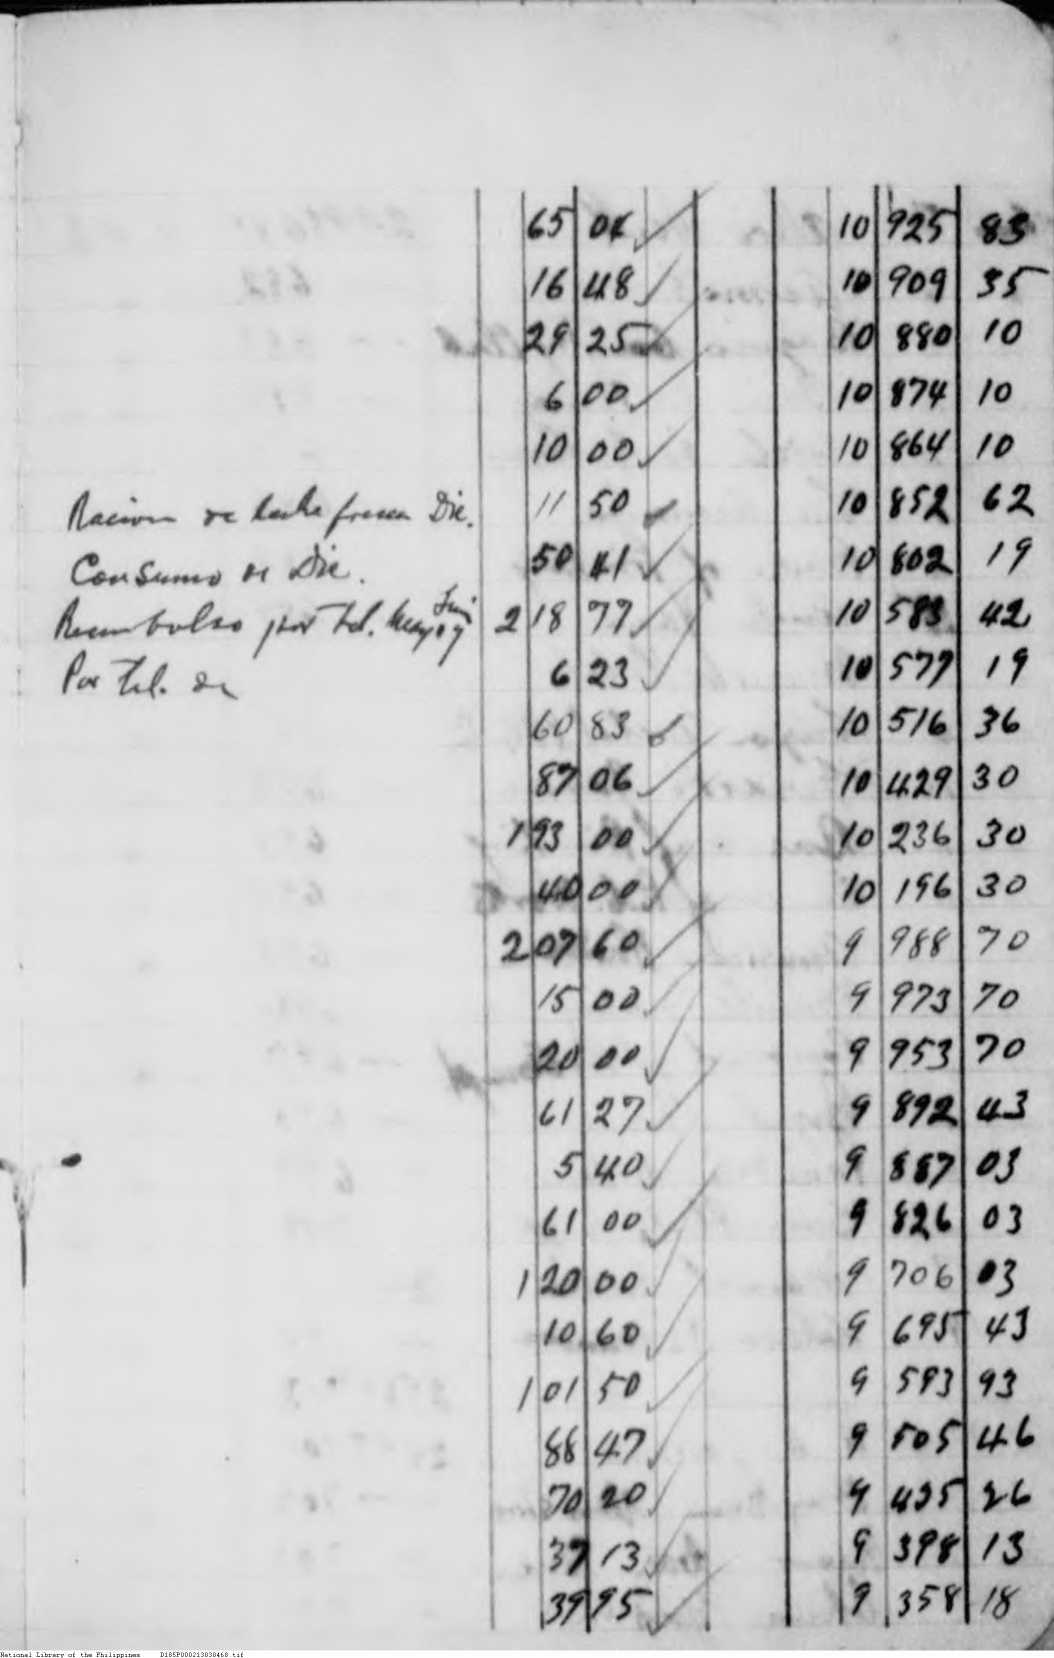 65 04 10 925 83
16 48 10 909 35
29 25 10 880 10
6 00 10 874 10
10 00 10 864 10
Racion de leche fresca Dic. 11 50 10 852 62
Consumo de Dic. 50 41 10 802 19
Reembolso por tel. May 2 18 77 10 583 42
Por tel. de 6 23 10 577 19
60 83 10 516 36
87 06 10 429 30
1 93 00 10 236 30
40 00 10 196 30
2 07 60 9 988 70
15 00 9 973 70
20 00 9 953 70
61 27 9 892 43
5 40 9 887 03
61 00 9 826 03
1 20 00 9 706 03
10 60 9 695 43
1 01 50 9 593 93
88 47 9 505 46
70 20 9 435 26
37 13 9 398 13
39 95 9 358 18
National Library of the Philippines D185P000213030468.tif